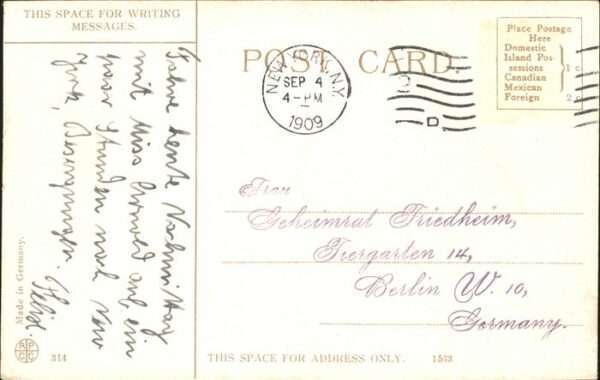 THIS SPACE FOR WRITING
MESSAGES.
POST CARD.
Place Postage
Here
Domestic
Island Pos-
sessions
Canadian
Mexican
1 c.
Foreign 2 c.
NEW YORK, N.Y.
SEP 4
4-PM
1909
D
Fahre heute Nachmittag
mit Miss auf ein
paar Stunden mal New
York,
Frau
Geheimrat Friedheim,
Tiergarten 14,
Berlin W. 10,
Germany.
Made in Germany.
314
THIS SPACE FOR ADDRESS ONLY. 1563